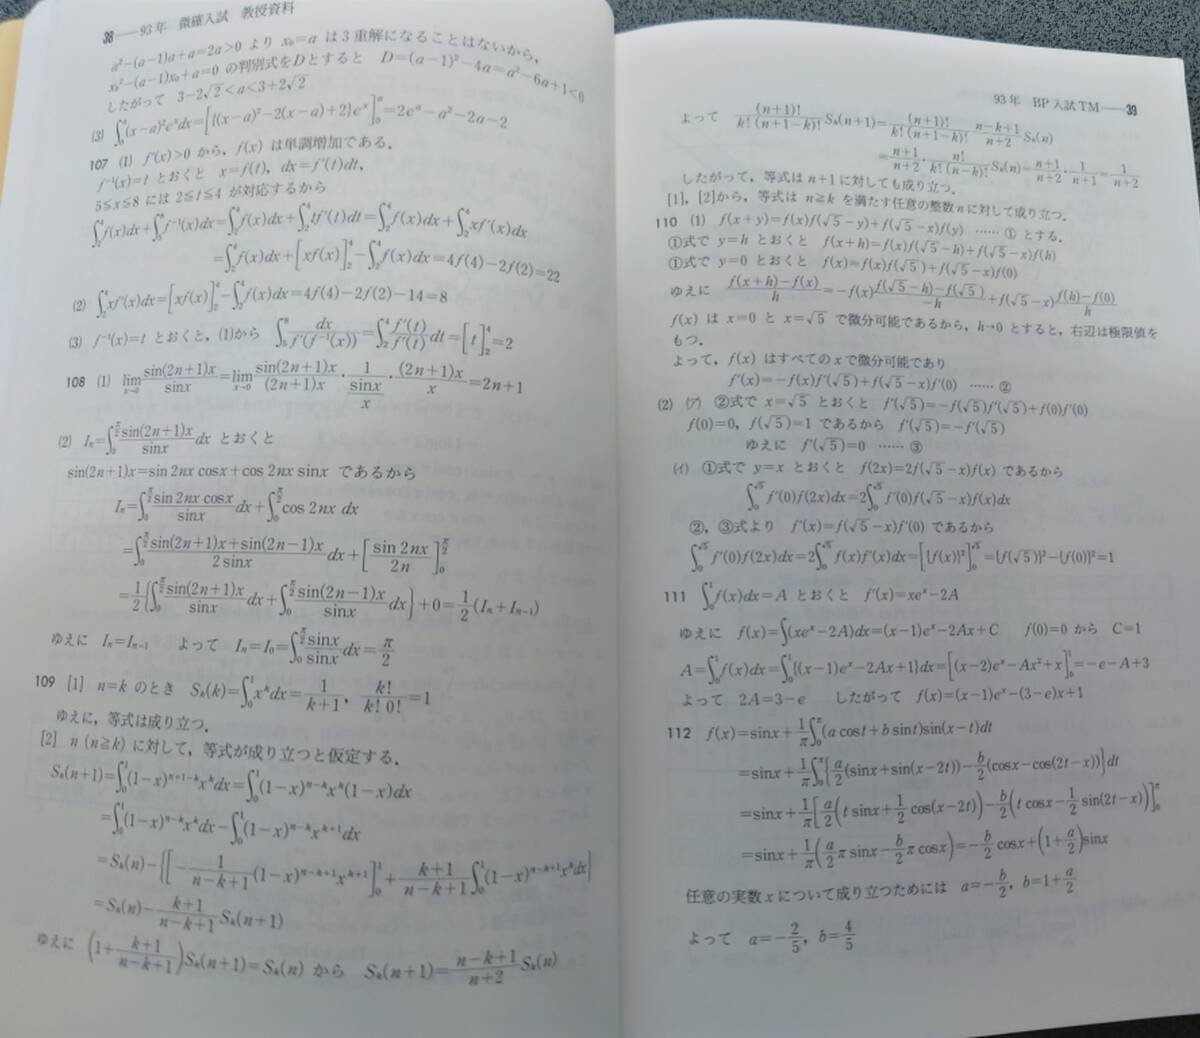 38——93年 微確入試 教授資料
a²−(a−1)a+a=2a>0 より x₀=a は3重解になることはないから，
x₀²−(a−1)x₀+a=0 の判別式をDとすると D=(a−1)²−4a=a²−6a+1<0
したがって 3−2√2<a<3+2√2
(3) ∫₀ᵃ(x−a)²eˣdx=[{(x−a)²−2(x−a)+2}eˣ]₀ᵃ=2eᵃ−a²−2a−2
107 (1) f′(x)>0 から，f(x) は単調増加である．
f⁻¹(x)=t とおくと x=f(t)，dx=f′(t)dt，
5≦x≦8 には 2≦t≦4 が対応するから
∫₂⁴f(x)dx+∫₅⁸f⁻¹(x)dx=∫₂⁴f(x)dx+∫₂⁴tf′(t)dt=∫₂⁴f(x)dx+∫₂⁴xf′(x)dx
=∫₂⁴f(x)dx+[xf(x)]₂⁴−∫₂⁴f(x)dx=4f(4)−2f(2)=22
(2) ∫₂⁴xf′(x)dx=[xf(x)]₂⁴−∫₂⁴f(x)dx=4f(4)−2f(2)−14=8
(3) f⁻¹(x)=t とおくと，(1)から ∫₅⁸ dx/f′(f⁻¹(x))=∫₂⁴ f′(t)/f′(t) dt=[t]₂⁴=2
108 (1) lim_{x→0} sin(2n+1)x/sinx=lim_{x→0} sin(2n+1)x/(2n+1)x · 1/(sinx/x) · (2n+1)x/x=2n+1
(2) Iₙ=∫₀^{π/2} sin(2n+1)x/sinx dx とおくと
sin(2n+1)x=sin 2nx cosx+cos 2nx sinx であるから
Iₙ=∫₀^{π/2} sin 2nx cosx/sinx dx+∫₀^{π/2}cos 2nx dx
=∫₀^{π/2} {sin(2n+1)x+sin(2n−1)x}/2 sinx dx+[sin 2nx/2n]₀^{π/2}
=1/2{∫₀^{π/2} sin(2n+1)x/sinx dx+∫₀^{π/2} sin(2n−1)x/sinx dx}+0=1/2(Iₙ+Iₙ₋₁)
ゆえに Iₙ=Iₙ₋₁ よって Iₙ=I₀=∫₀^{π/2} sinx/sinx dx=π/2
109 [1] n=k のとき Sₖ(k)=∫₀¹xᵏdx=1/(k+1)，k!/(k! 0!)=1
ゆえに，等式は成り立つ．
[2] n (n≧k) に対して，等式が成り立つと仮定する．
Sₖ(n+1)=∫₀¹(1−x)ⁿ⁺¹⁻ᵏxᵏdx=∫₀¹(1−x)ⁿ⁻ᵏxᵏ(1−x)dx
=∫₀¹(1−x)ⁿ⁻ᵏxᵏdx−∫₀¹(1−x)ⁿ⁻ᵏxᵏ⁺¹dx
=Sₖ(n)−{[−1/(n−k+1) (1−x)ⁿ⁻ᵏ⁺¹xᵏ⁺¹]₀¹+(k+1)/(n−k+1) ∫₀¹(1−x)ⁿ⁻ᵏ⁺¹xᵏdx}
=Sₖ(n)−(k+1)/(n−k+1) Sₖ(n+1)
ゆえに (1+(k+1)/(n−k+1))Sₖ(n+1)=Sₖ(n) から Sₖ(n+1)=(n−k+1)/(n+2) Sₖ(n)
93年 BP入試TM——39
よって (n+1)!/{k!(n+1−k)!} Sₖ(n+1)=(n+1)!/{k!(n+1−k)!} · (n−k+1)/(n+2) Sₖ(n)
=(n+1)/(n+2)·n!/{k!(n−k)!} Sₖ(n)=(n+1)/(n+2)·1/(n+1)=1/(n+2)
したがって，等式は n+1 に対しても成り立つ．
[1]，[2]から，等式は n≧k を満たす任意の整数 n に対して成り立つ．
110 (1) f(x+y)=f(x)f(√5−y)+f(√5−x)f(y) …… ① とする．
①式で y=h とおくと f(x+h)=f(x)f(√5−h)+f(√5−x)f(h)
①式で y=0 とおくと f(x)=f(x)f(√5)+f(√5−x)f(0)
ゆえに {f(x+h)−f(x)}/h=−f(x){f(√5−h)−f(√5)}/−h+f(√5−x){f(h)−f(0)}/h
f(x) は x=0 と x=√5 で微分可能であるから，h→0 とすると，右辺は極限値を
もつ．
よって，f(x) はすべての x で微分可能であり
f′(x)=−f(x)f′(√5)+f(√5−x)f′(0) …… ②
(2) (ア) ②式で x=√5 とおくと f′(√5)=−f(√5)f′(√5)+f(0)f′(0)
f(0)=0，f(√5)=1 であるから f′(√5)=−f′(√5)
ゆえに f′(√5)=0 …… ③
(イ) ①式で y=x とおくと f(2x)=2f(√5−x)f(x) であるから
∫₀^{√5} f′(0)f(2x)dx=2∫₀^{√5} f′(0)f(√5−x)f(x)dx
②，③式より f′(x)=f(√5−x)f′(0) であるから
∫₀^{√5} f′(0)f(2x)dx=2∫₀^{√5} f(x)f′(x)dx=[{f(x)}²]₀^{√5}={f(√5)}²−{f(0)}²=1
111 ∫₀¹f(x)dx=A とおくと f′(x)=xeˣ−2A
ゆえに f(x)=∫(xeˣ−2A)dx=(x−1)eˣ−2Ax+C f(0)=0 から C=1
A=∫₀¹f(x)dx=∫₀¹{(x−1)eˣ−2Ax+1}dx=[(x−2)eˣ−Ax²+x]₀¹=−e−A+3
よって 2A=3−e したがって f(x)=(x−1)eˣ−(3−e)x+1
112 f(x)=sinx+1/π∫₀^π(a cost+b sint)sin(x−t)dt
=sinx+1/π∫₀^π{a/2(sinx+sin(x−2t))−b/2(cosx−cos(2t−x))}dt
=sinx+1/π[a/2(t sinx+1/2 cos(x−2t))−b/2(t cosx−1/2 sin(2t−x))]₀^π
=sinx+1/π(a/2 π sinx−b/2 π cosx)=−b/2 cosx+(1+a/2)sinx
任意の実数 x について成り立つためには a=−b/2，b=1+a/2
よって a=−2/5，b=4/5